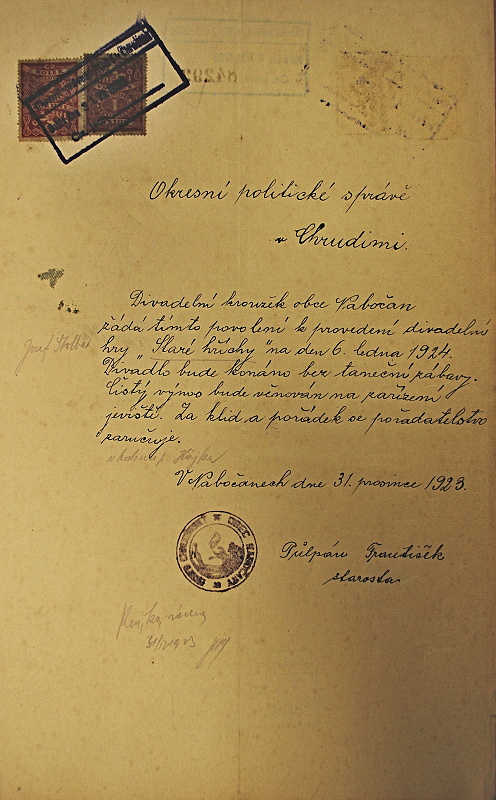 Okresní politické správě
v Chrudimi.
Divadelní kroužek obce Nabočan
žádá tímto povolení k provedení divadelní
hry „Staré hříchy" na den 6. ledna 1924.
Divadlo bude konáno bez taneční zábavy.
Čistý výnos bude věnován na zařízení
jeviště. Za klid a pořádek se pořadatelstvo
zaručuje.
V Nabočanech dne 31. prosince 1923.
Půlpán František
starosta